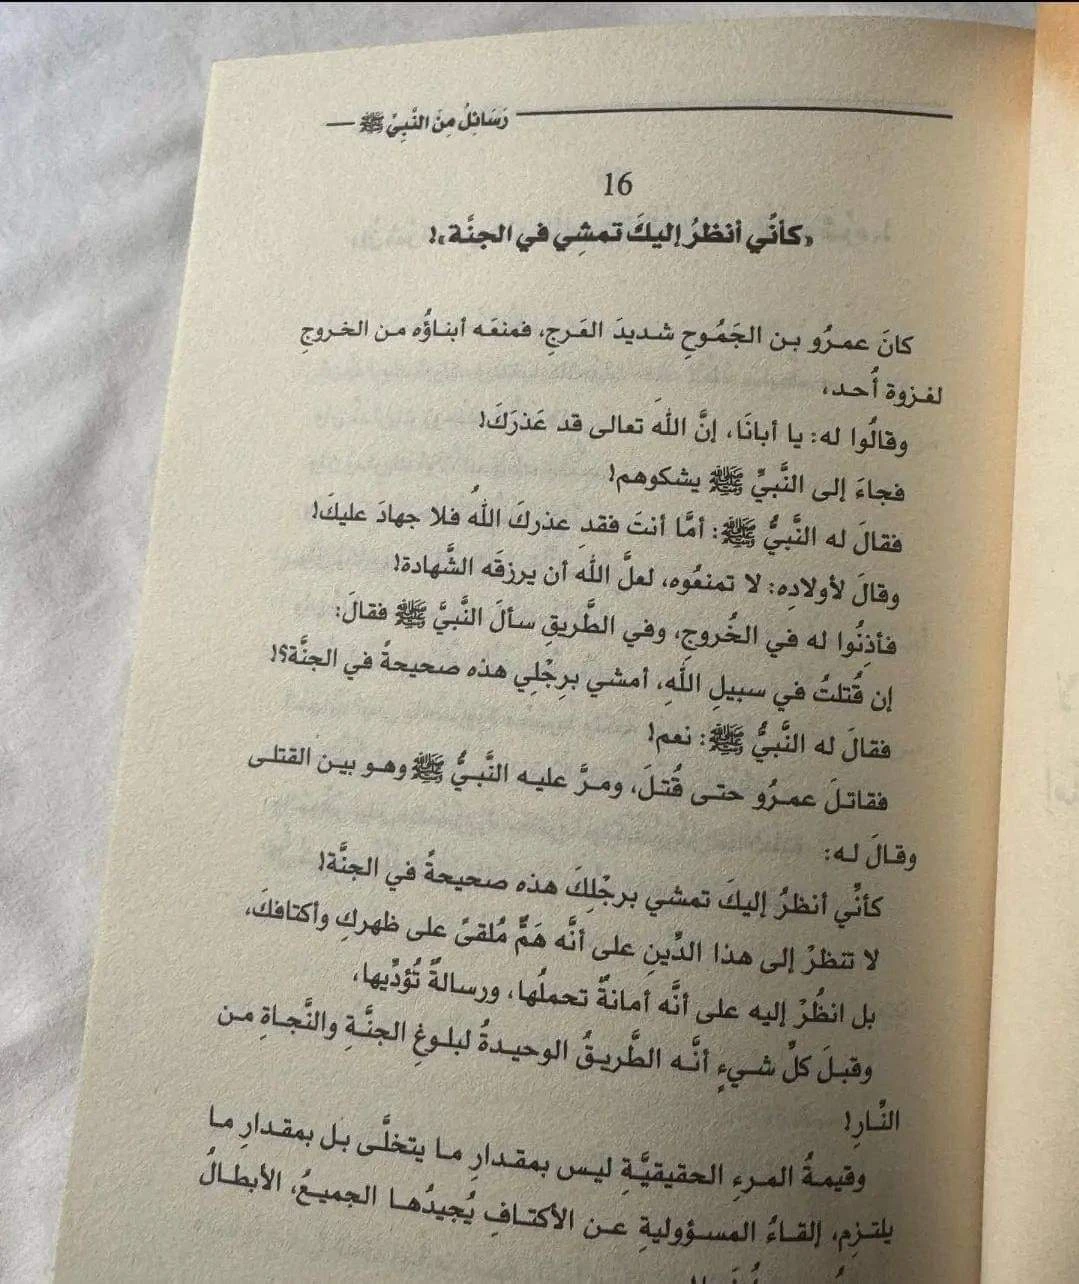 رَسَائِلُ مِنَ النَّبِيِّ ﷺ
16
«كأنِّي أنظرُ إليكَ تمشِي في الجنَّة»!
كانَ عمرُو بن الجَمُوحِ شديدَ العَرجِ، فمنعَه أبناؤُه من الخروجِ
لغزوة أُحد،
وقالُوا له: يا أبانَا، إنَّ اللهَ تعالى قد عَذرَكَ!
فجاءَ إلى النَّبيِّ ﷺ يشكوهم!
فقالَ له النَّبيُّ ﷺ: أمَّا أنتَ فقدِ عذركَ اللهُ فلا جهادَ عليكَ!
وقالَ لأولادِه: لا تمنعُوه، لعلَّ الله أن يرزقَه الشَّهادة!
فأذِنُوا له في الخُروجِ، وفي الطَّريقِ سألَ النَّبيَّ ﷺ فقالَ:
إن قُتلتُ في سبيلِ اللهِ، أمشي برِجْلِي هذه صحيحةً في الجنَّة؟!
فقالَ له النَّبيُّ ﷺ: نعم!
فقاتلَ عمرُو حتى قُتلَ، ومرَّ عليه النَّبيُّ ﷺ وهو بين القتلى
وقالَ له:
كأنِّي أنظرُ إليكَ تمشي برجْلِكَ هذه صحيحةً في الجنَّة!
لا تنظرْ إلى هذا الدِّينِ على أنَّه هَمٌّ مُلقىً على ظهركِ وأكتافكَ،
بل انظُرْ إليه على أنَّه أمانةٌ تحملُها، ورسالةٌ تُؤدِّيها،
وقبلَ كلِّ شيءٍ أنَّه الطَّريقُ الوحيدةُ لبلوغِ الجنَّةِ والنَّجاةِ من
النَّارِ!
وقيمةُ المرءِ الحقيقيَّةِ ليس بمقدارِ ما يتخلَّى بل بمقدارِ ما
يلتزم، إلقاءُ المسؤوليةِ عن الأكتافِ يُجيدُها الجميعُ، الأبطالُ